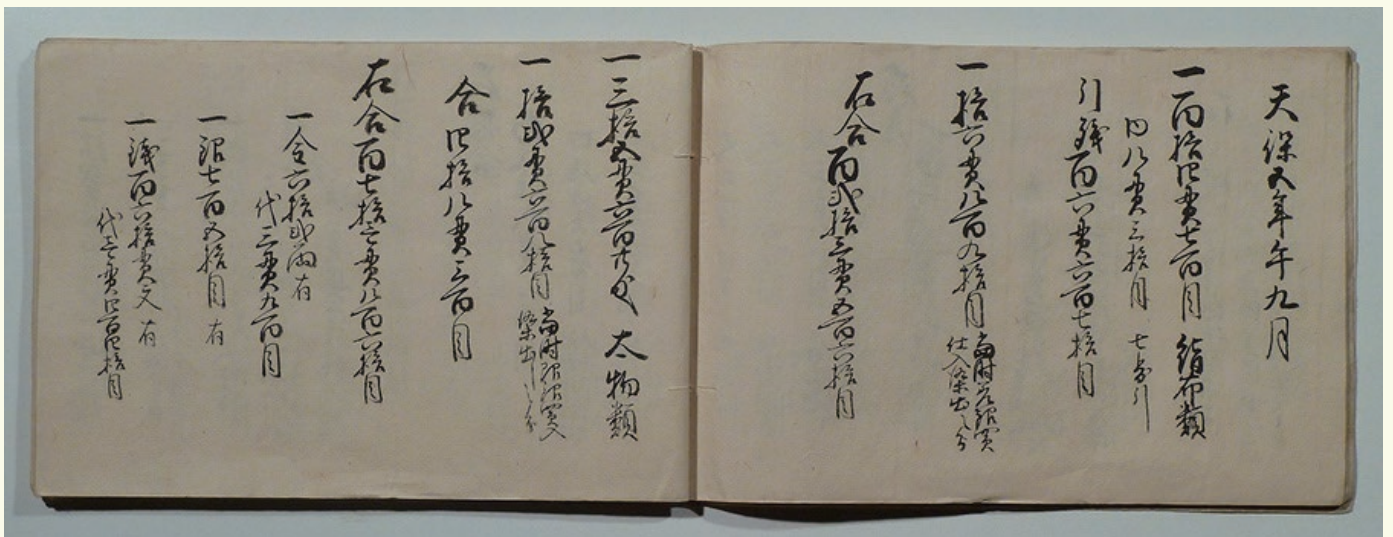 天保五年午九月
一百拾四貫七百目 絹布類
内八貫三拾目 七歩引
引残百六貫六百七拾目
一拾六貫八百九拾目 当時
仕入染出し分
右合百弐拾三貫五百六拾目
一三拾五貫六百廿匁 太物類
一拾弐貫六百八拾目 当時 買入
染出し之分
合四拾八貫三百目
右合百七拾壱貫八百六拾目
一金六拾弐両有
代三貫九百目
一銀七百五拾目有
一銭百六拾貫文有
代壱貫四百四拾目